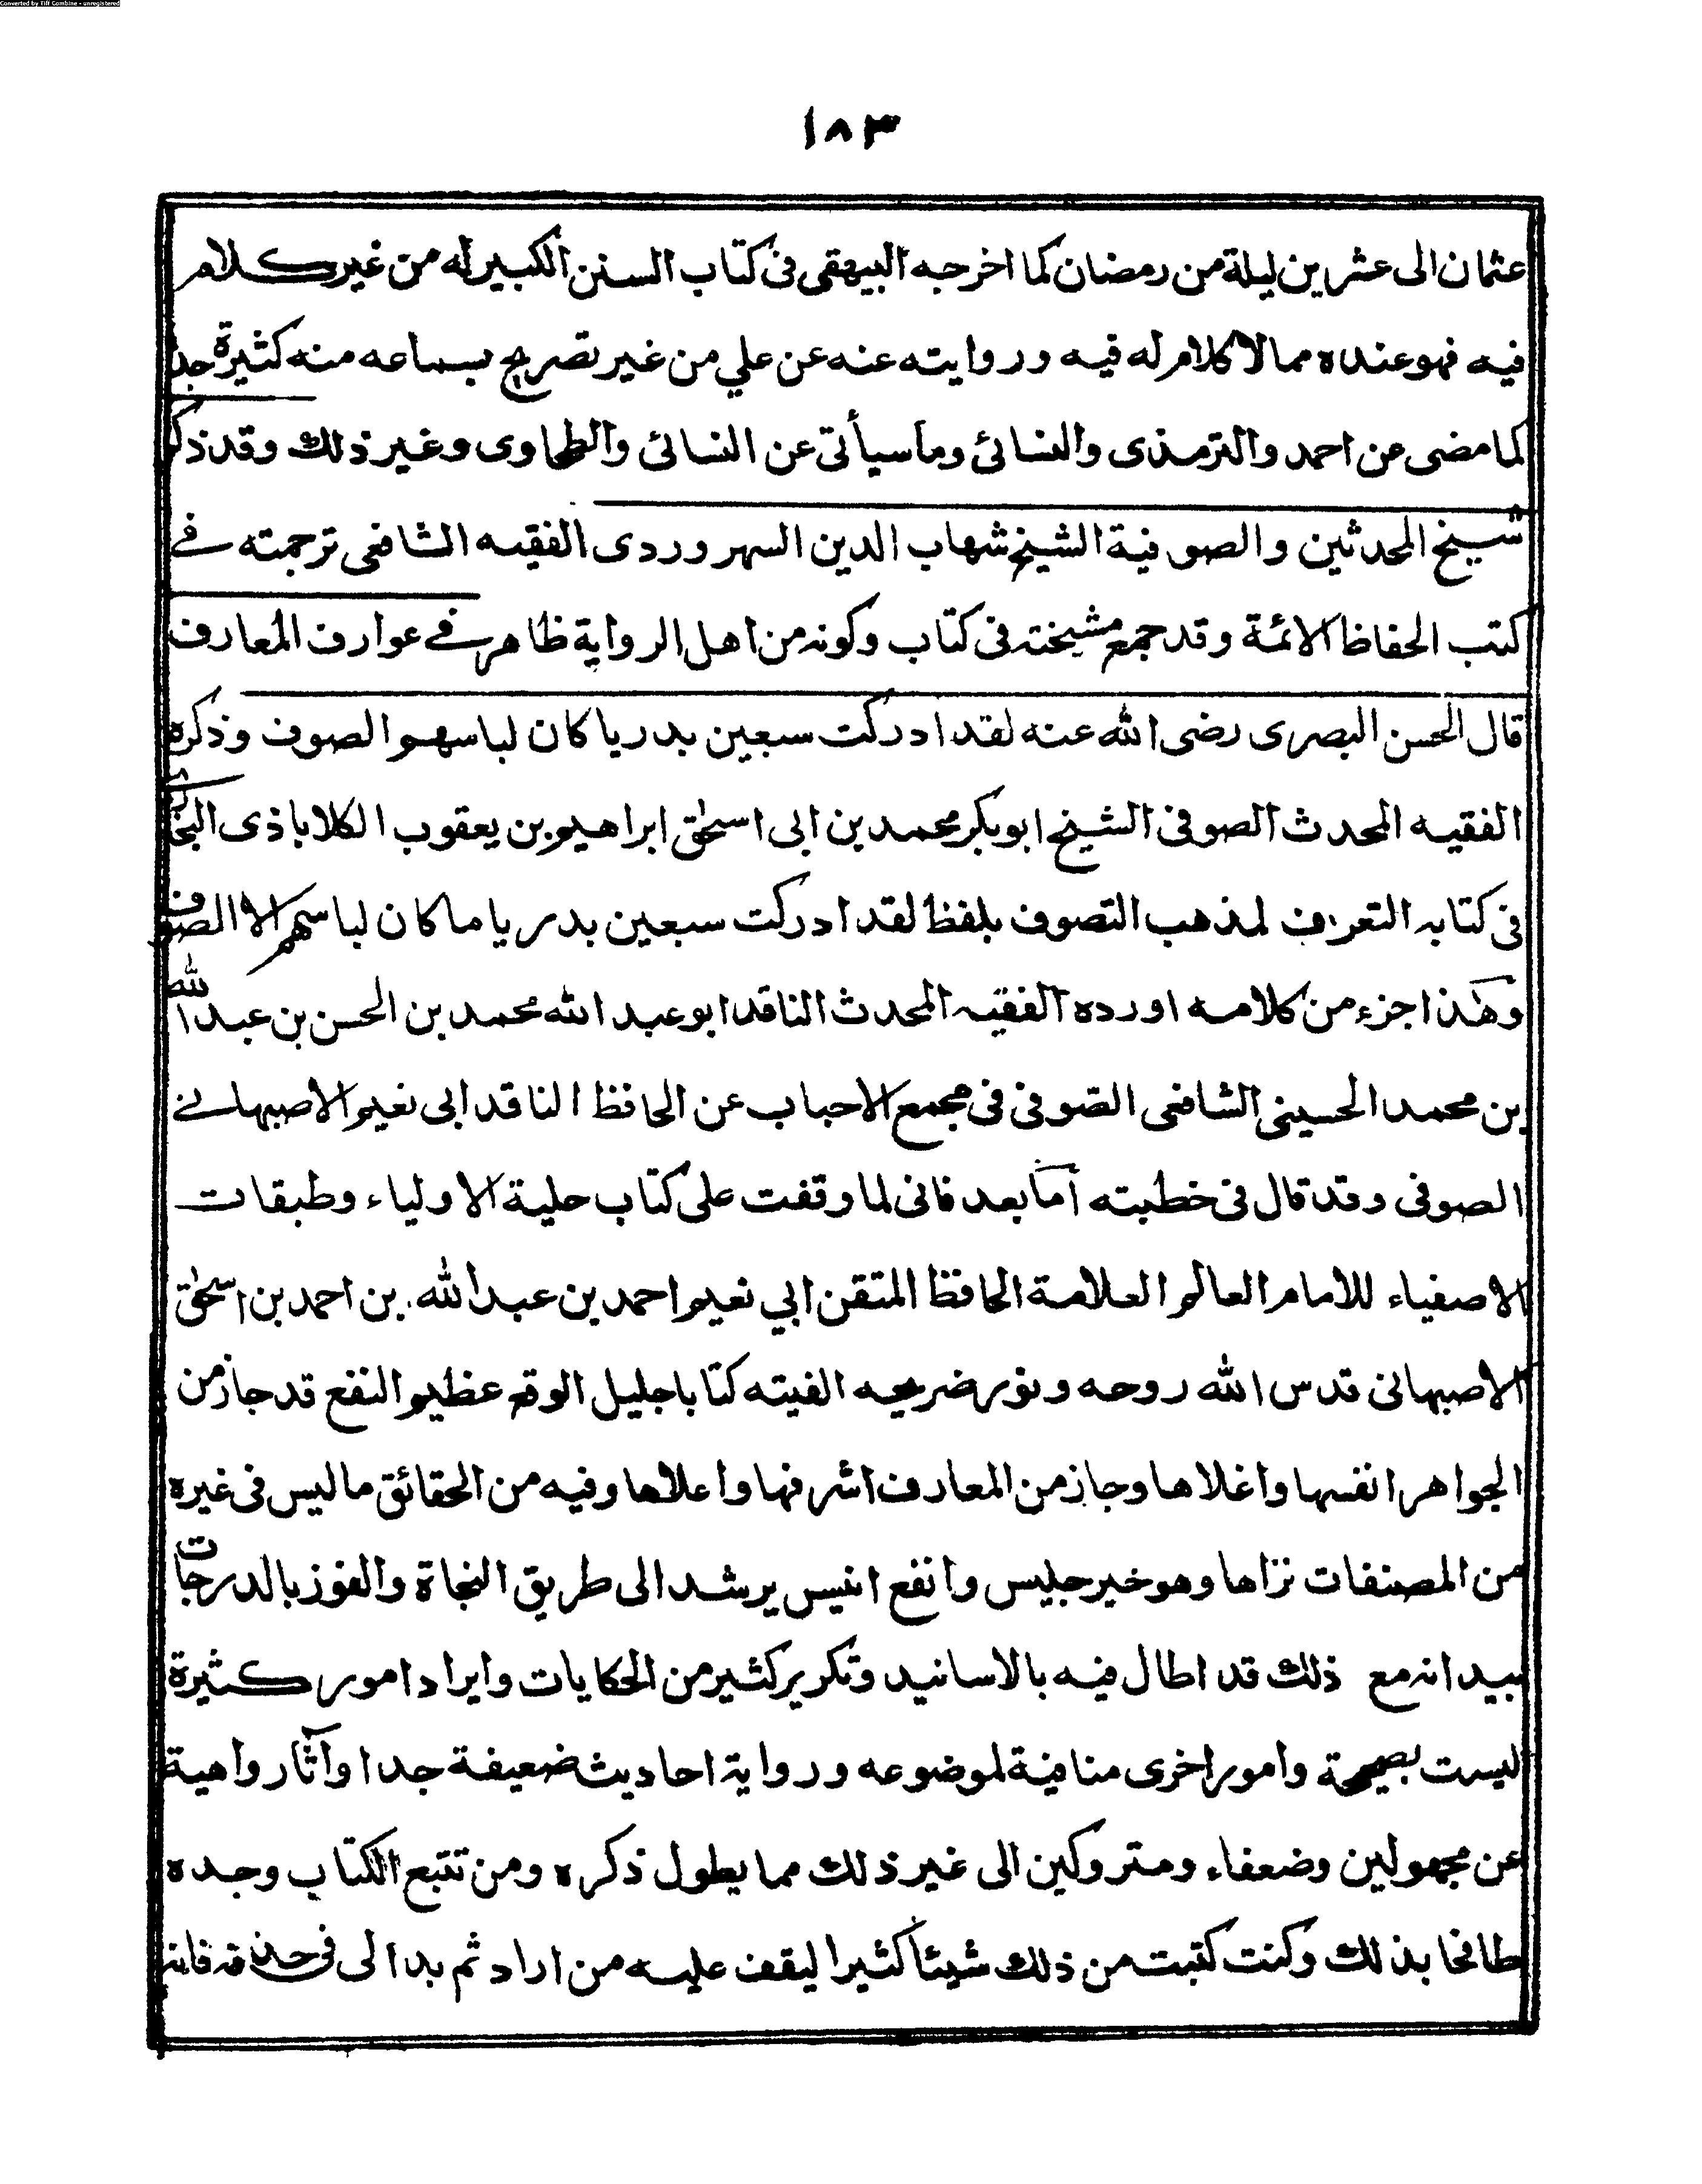 Converted by Tiff Combine - unregistered
١٨٣
عثمان الى عشرين ليلة من رمضان كما اخرجه البيهقى فى كتاب السنن الكبير له من غير كلام
فيه فهو عنده مما لا كلام له فيه وروايته عنه عن علي من غير تصريح بسماعه منه كثيرة جدا
كما مضى عن احمد والترمذى والنسائى وما سيأتى عن النسائى والطحاوى وغير ذلك وقد ذكر
شيخ المحدثين والصوفية الشيخ شهاب الدين السهروردى الفقيه الشافعى ترجمته فے
كتب الحفاظ الائمة وقد جمع مشيخته فى كتاب وكونه من اهل الرواية ظاهر فے عوارف المعارف
قال الحسن البصرى رضى الله عنه لقد ادركت سبعين بدريا كان لباسهم الصوف وذكره
الفقيه المحدث الصوفى الشيخ ابوبكر محمد بن ابى اسحٰق ابراهيم بن يعقوب الكلاباذى البخارى
فى كتابه التعرف لمذهب التصوف بلفظ لقد ادركت سبعين بدريا ما كان لباسهم الا الصوف
وهٰذا جزء من كلامه اورده الفقيه المحدث الناقد ابوعبد الله محمد بن الحسن بن عبد الله
بن محمد الحسينى الشافعى الصوفى فى مجمع الاحباب عن الحافظ الناقد ابى نعيم الاصبهانے
الصوفى وقد قال فى خطبته أما بعد فانى لما وقفت على كتاب حلية الاولياء وطبقات
الاصفياء للامام العالم العلامة الحافظ المتقن ابي نعيم احمد بن عبد الله بن احمد بن اسحٰق
الاصبهانى قدس الله روحه ونور ضريحه الفيته كتابا جليل الوقع عظيم النفع قد حاز من
الجواهر انفسها واغلاها وجاز من المعارف اشرفها واعلاها وفيه من الحقائق ما ليس فى غيره
من المصنفات نراها وهو خير جليس وانفع انيس يرشد الى طريق النجاة والفوز بالدرجات
بيد انه مع ذلك قد اطال فيه بالاسانيد وتكرير كثير من الحكايات وايراد امور كثيرة
ليست بصحيحة وامور اخرى منافية لموضوعه ورواية احاديث ضعيفة جدا وآثار واهية
عن مجهولين وضعفاء ومتروكين الى غير ذلك مما يطول ذكره ومن تتبع الكتاب وجده
طافحا بذلك وكنت كتبت من ذلك شيئا كثيرا ليقف عليه من اراد ثم بدا لى فى حذفه فانه